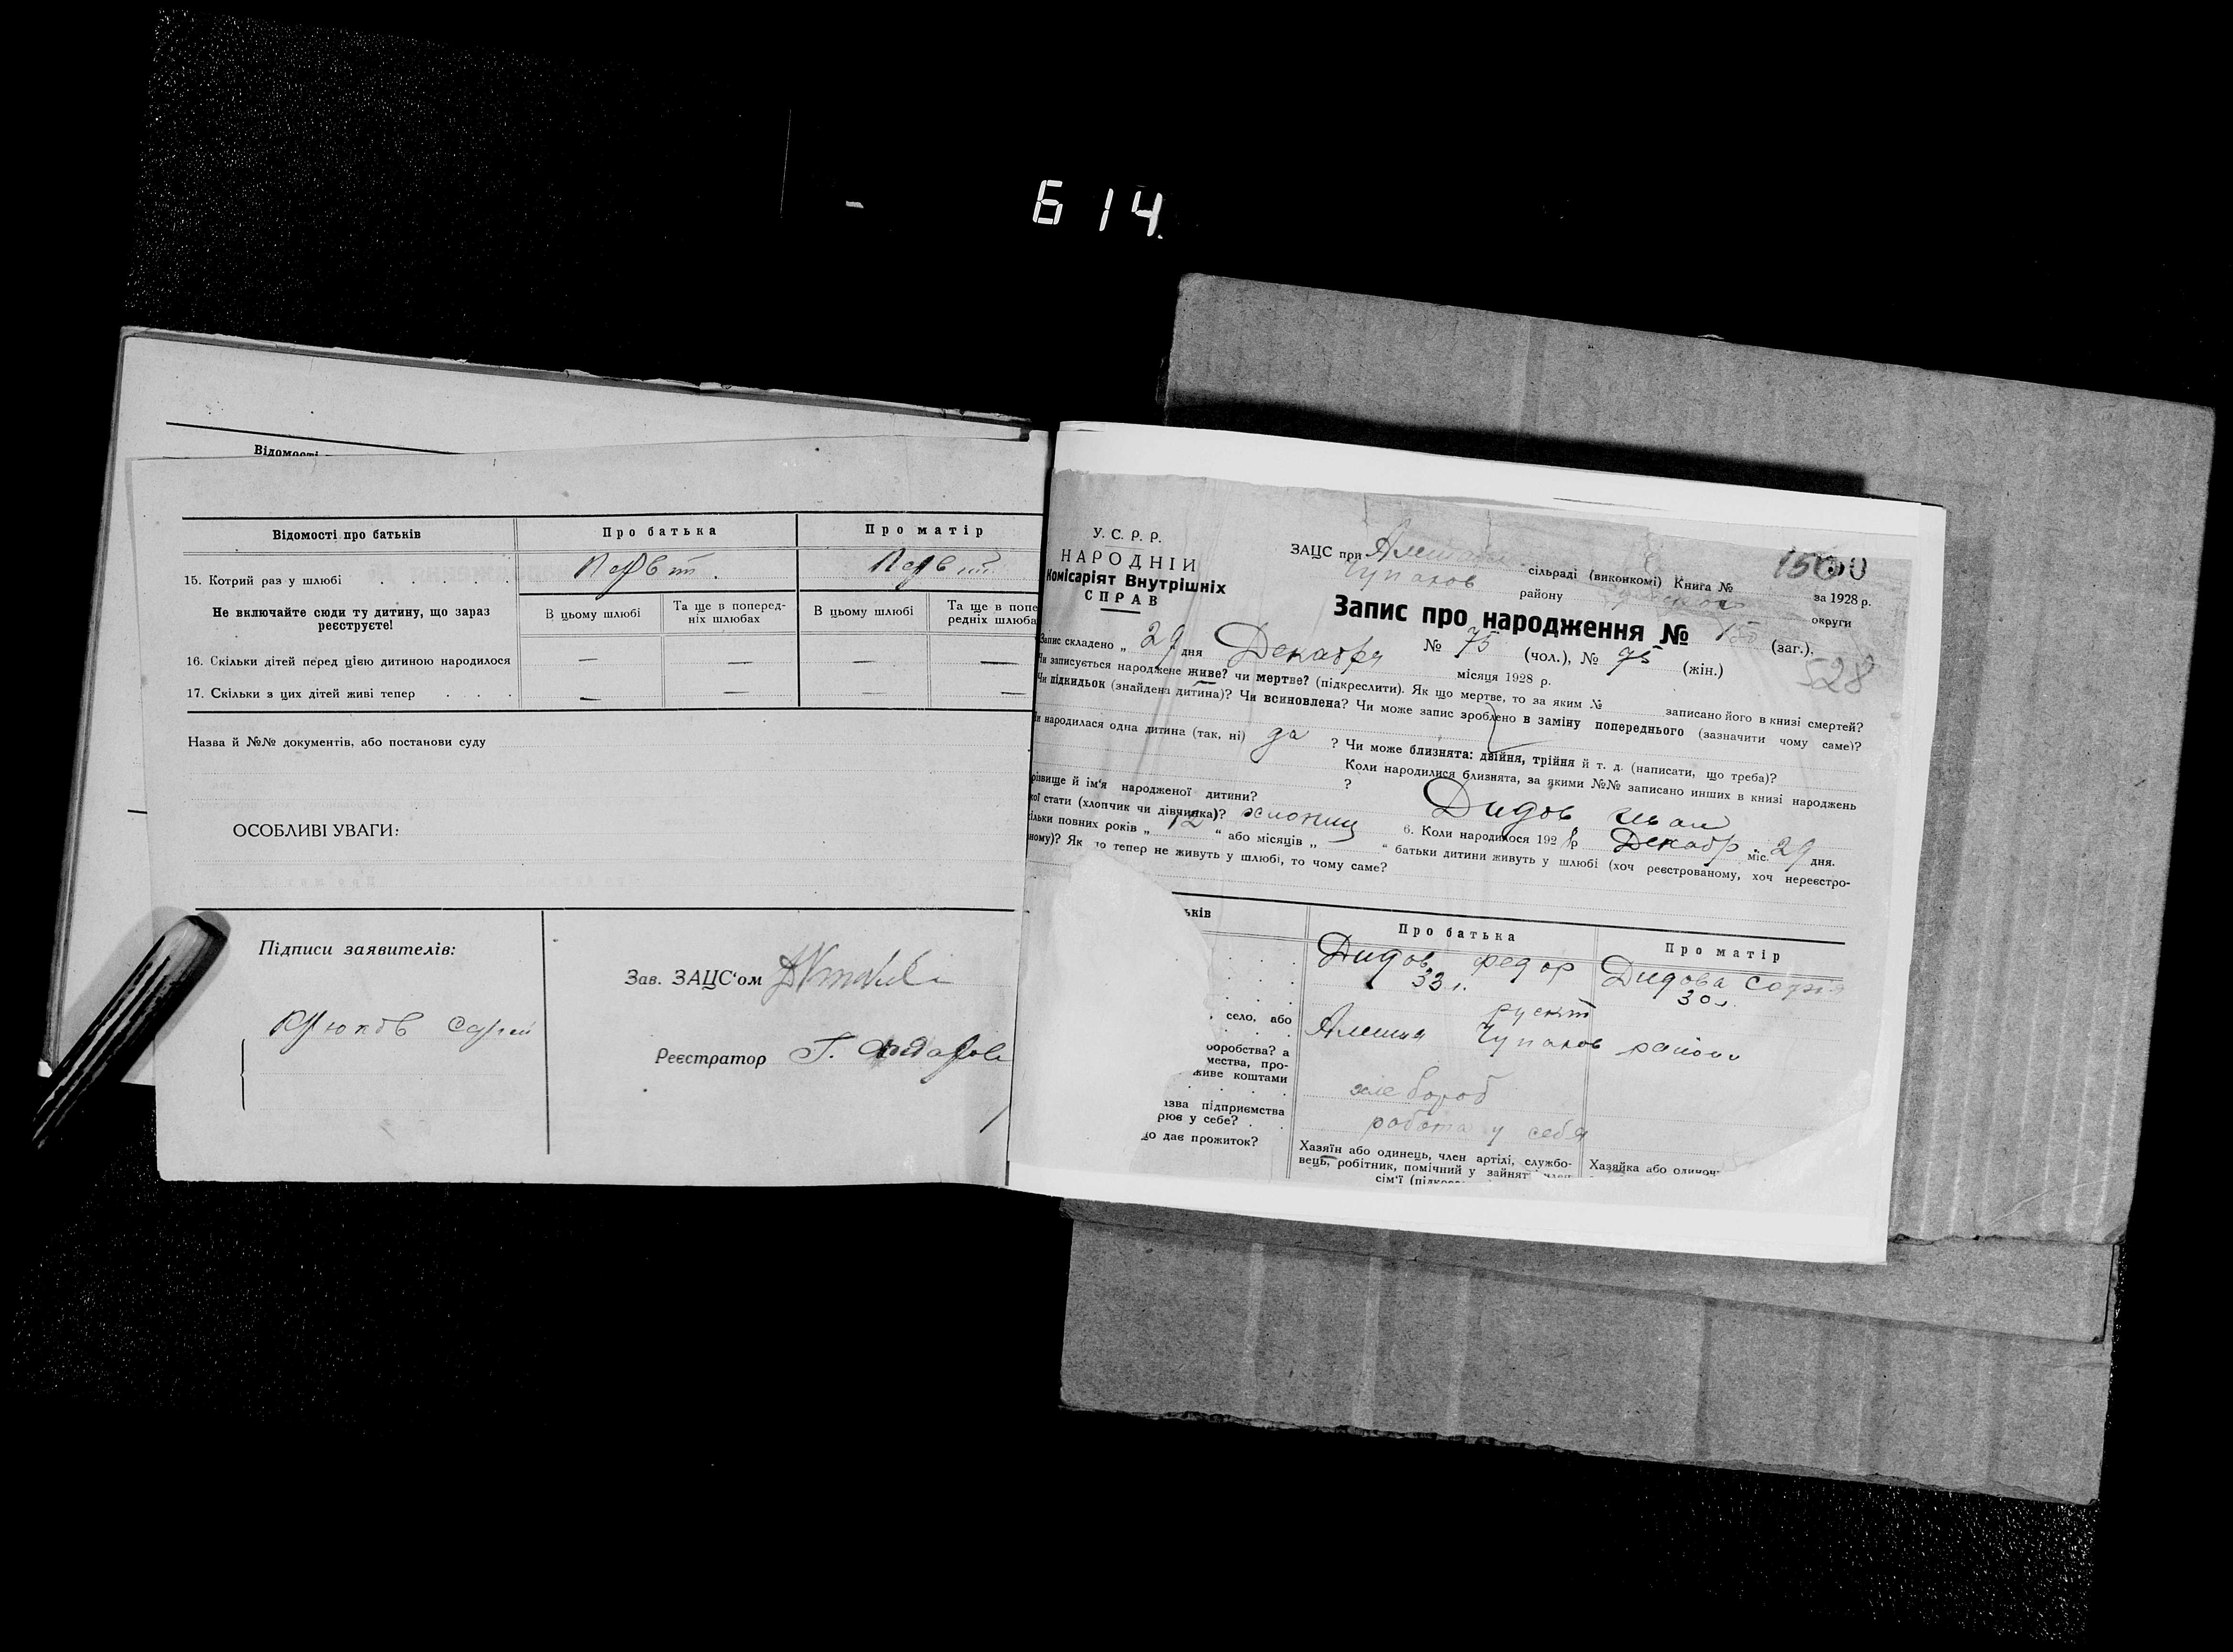 614
Відомості
Відомості про батьків
Про батька
Про матір
15. Котрий раз у шлюбі
Не включайте сюди ту дитину, що зараз
реєструєте!
В цьому шлюбі
Та ще в поперед-
ніх шлюбах
В цьому шлюбі
Та ще в попе
редніх шлюба
16. Скільки дітей перед цією дитиною народилося — — — —
17. Скільки з цих дітей живі тепер — — — —
Назва й №№ документів, або постанови суду
ОСОБЛИВІ УВАГИ:
Підписи заявителів:
Зав. ЗАЦС'ом
Реєстратор Г.
У. С. Р. Р.
НАРОДНІЙ
Комісаріят Внутрішніх
СПРАВ
ЗАЦС при сільраді (виконкомі) Книга № за 1928 р.
Чупахов району округи
150
Запис про народження № 150 (заг.).
№ 75 (чол.), № 75 (жін.)
528
Запис складено „ 29 дня Декабря місяця 1928 р.
Чи записується народжене живе? чи мертве? (підкреслити). Як що мертве, то за яким № записано його в книзі смертей?
Чи підкидьок (знайдена дитина)? Чи всиновлена? Чи може запис зроблено в заміну попереднього (зазначити чому саме)?
и народилася одна дитина (так, ні) да ? Чи може близнята: двійня, трійня й т. д. (написати, що треба)?
Коли народилися близнята, за якими №№ записано инших в книзі народжень
?
різвище й ім'я народженої дитини? Дидов Иван
кої стати (хлопчик чи дівчинка)? хлопиц 6. Коли народилося 192 8р Декабр міс. 29 дня.
ільки повних років „ 12 “ або місяців „ “ батьки дитини живуть у шлюбі (хоч реєстрованому, хоч нереєстро-
ному)? Як що тепер не живуть у шлюбі, то чому саме?
ьків
Про батька
Про матір
Дидов Федор
Дидова София
33 л.
30 л.
село, або
Чупахов район
оробства? а
мества, про-
живе коштами
азва підприємства
рює у себе?
работа у себя
що дає прожиток?
Хазяїн або одинець, член артілі, службо-
вець, робітник, помічний у зайнят член
сім'ї
Хазяйка або одиноч